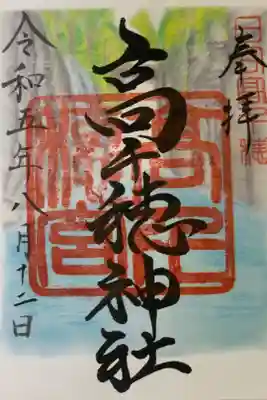 奉拝
高千穂神社
令和五年八月十二日